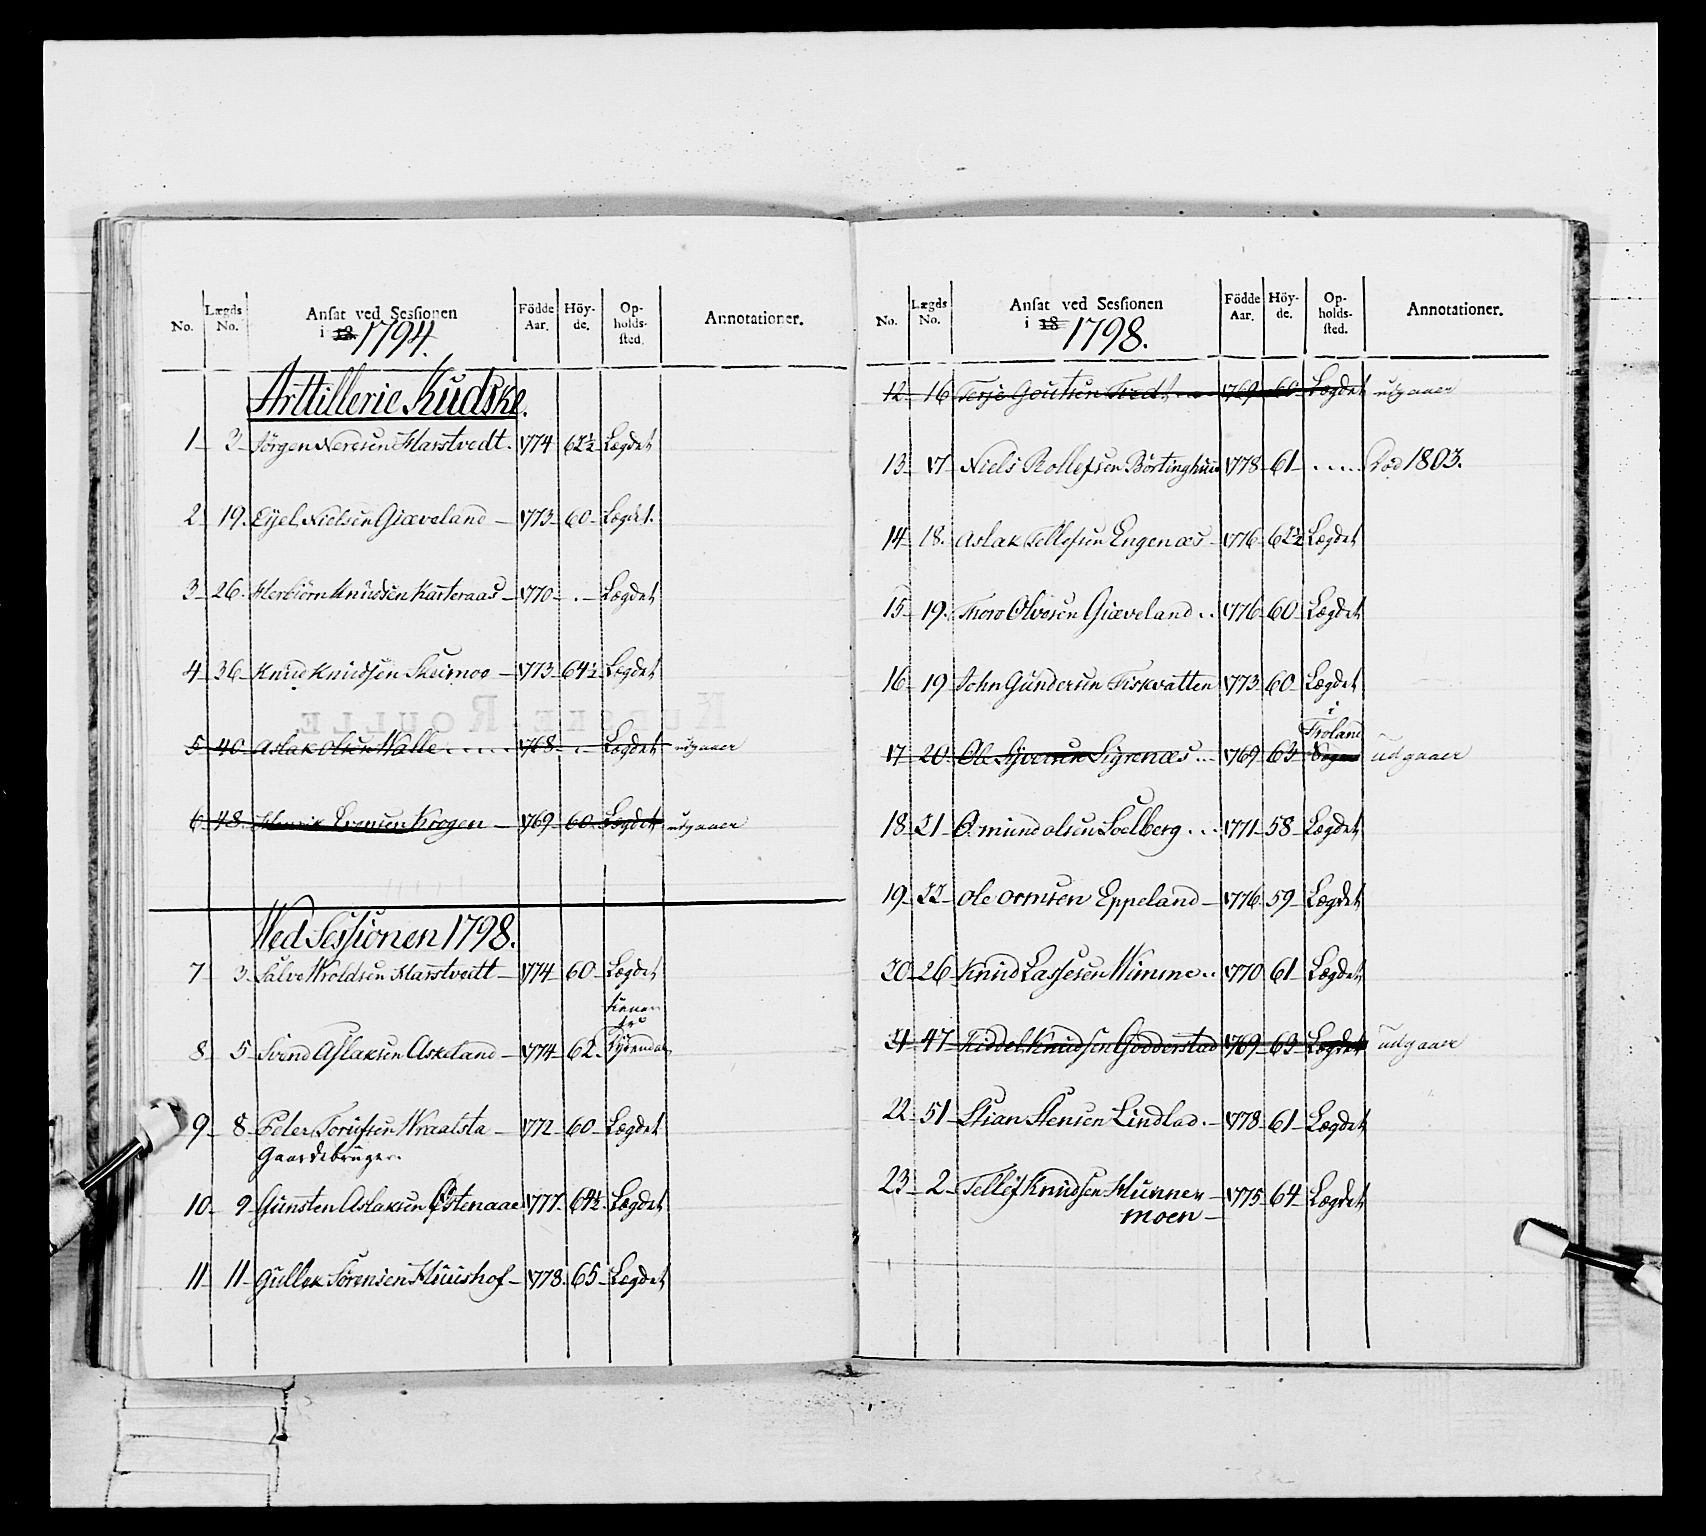 No. Lægds No. Ansat ved Sessionen i 18 1794. Födde Aar. Höyde. Opholdssted. Annotationer.
Arttillerie Kudske.
1 2 Jörgen Neresen Harstvedt. 1774 62½ Lægdet
2 19. Eyel Nielsen Giæveland 1773 60 Lægdet.
3 26. Herbiörn Knudsen Kasteraas 1770 . Lægdet
4 36 Knud Knudsen Skeimoe 1773 64½ Lægdet
5 40 Aslak Olsen Walle 1768 . Lægdet udgaaer
6 48. Henrik Evensen Krogen 1769 60 Lægdet udgaaer
Ved Sessionen 1798.
7 3 Salve Wroldsen Harstvedt 1774 60 Lægdet
8 5 Svend Aslaksen Askeland 1774 62
9 8 Peder Torüfsen Wraalsta 1772 60 Lægdet
Gaardsbruger.
10 9 Gunsten Aslaksen Östenaae 1777 64½ Lægdet
11 11 Gullek Sörensen Huushof 1778. 65 Lægdet
KUDSKE-ROULLE
No. Lægds No. Ansat ved Sessionen i 18 1798. Födde Aar. Höyde. Opholdssted. Annotationer.
12 16 Terje Goutsen Tvedt 1769 60 Lægdet udgaaer
13 17 Niels Rollefsen Börtinghuus 1778 61 Död 1803.
14 18. Aslak Tellefsen Engenæs 1776 62½ Lægdet
15 19. Thoro Olvesen Giæveland 1776 60 Lægdet
16 19 John Gundersen Fiskvatten 1773 60 Lægdet
i
Froland
17 20 Ole Syversen Sigrenæs 1769 63 Sogn udgaaer
18 21 Omund Olsen Soelberg 1771 58 Lægdet
19 22 Ole Ormsen Eppeland 1776 59 Lægdet
20 26 Knud Lassesen Wimme 1770 61 Lægdet
21 47 Fiddel Knudsen Godderstad 1769 63 Lægdet udgaaer
22 51 Stian Stensen Lindlad. 1778 61 Lægdet
23 2 Tellef Knudsen Hunne
moen 1775 64 Lægdet